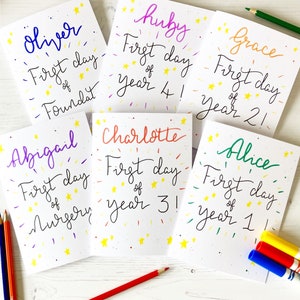 Oliver
First day
of
Foundat
Ruby
First day
of
year 4!
Grace
First day
of
year 2!
Abigail
First day
of
Nursery
Charlotte
First day
of
year 3!
Alice
First day
of
year 1!